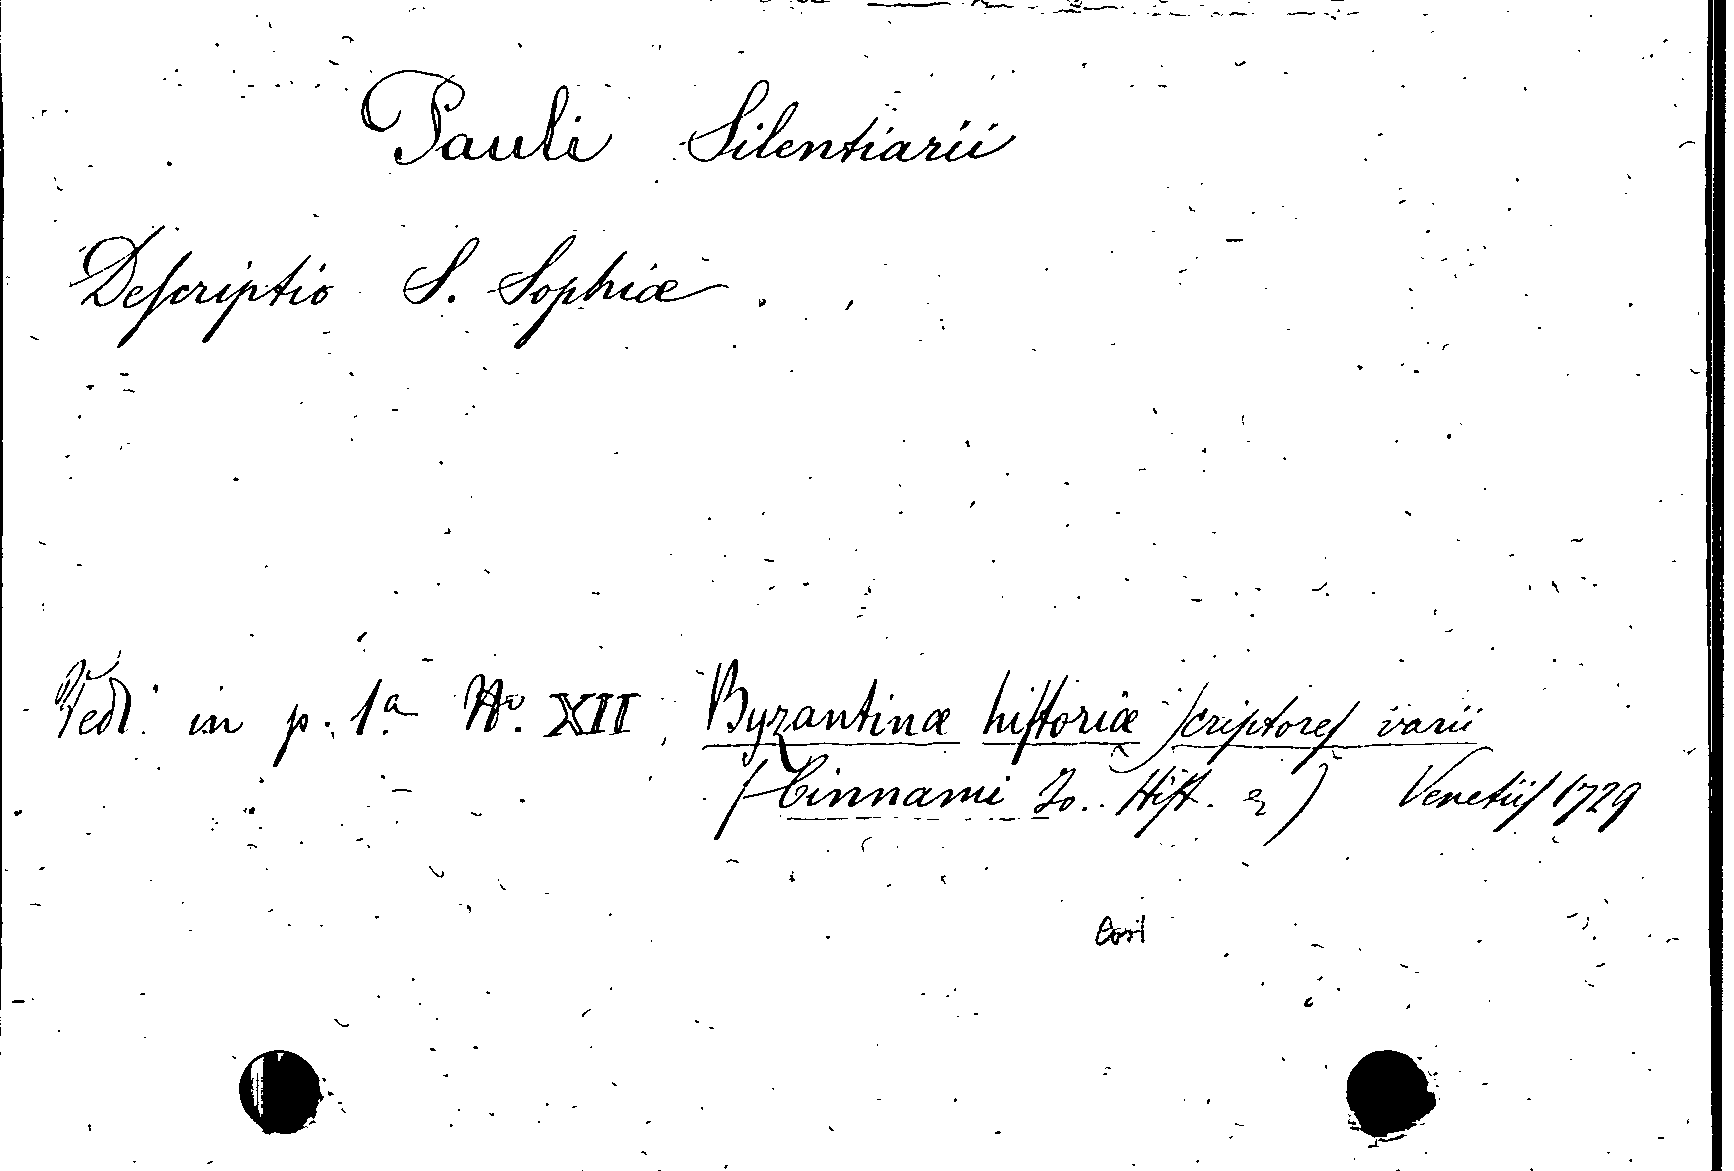 Pauli Silentiarii
Deſcriptio S. Sophiæ.
Vedi in p. 1.a No. XII, Byzantinæ hiſtoriæ ſcriptoreſ varii
(Cinnami Jo. Hiſt. &) Venetiiſ 1729